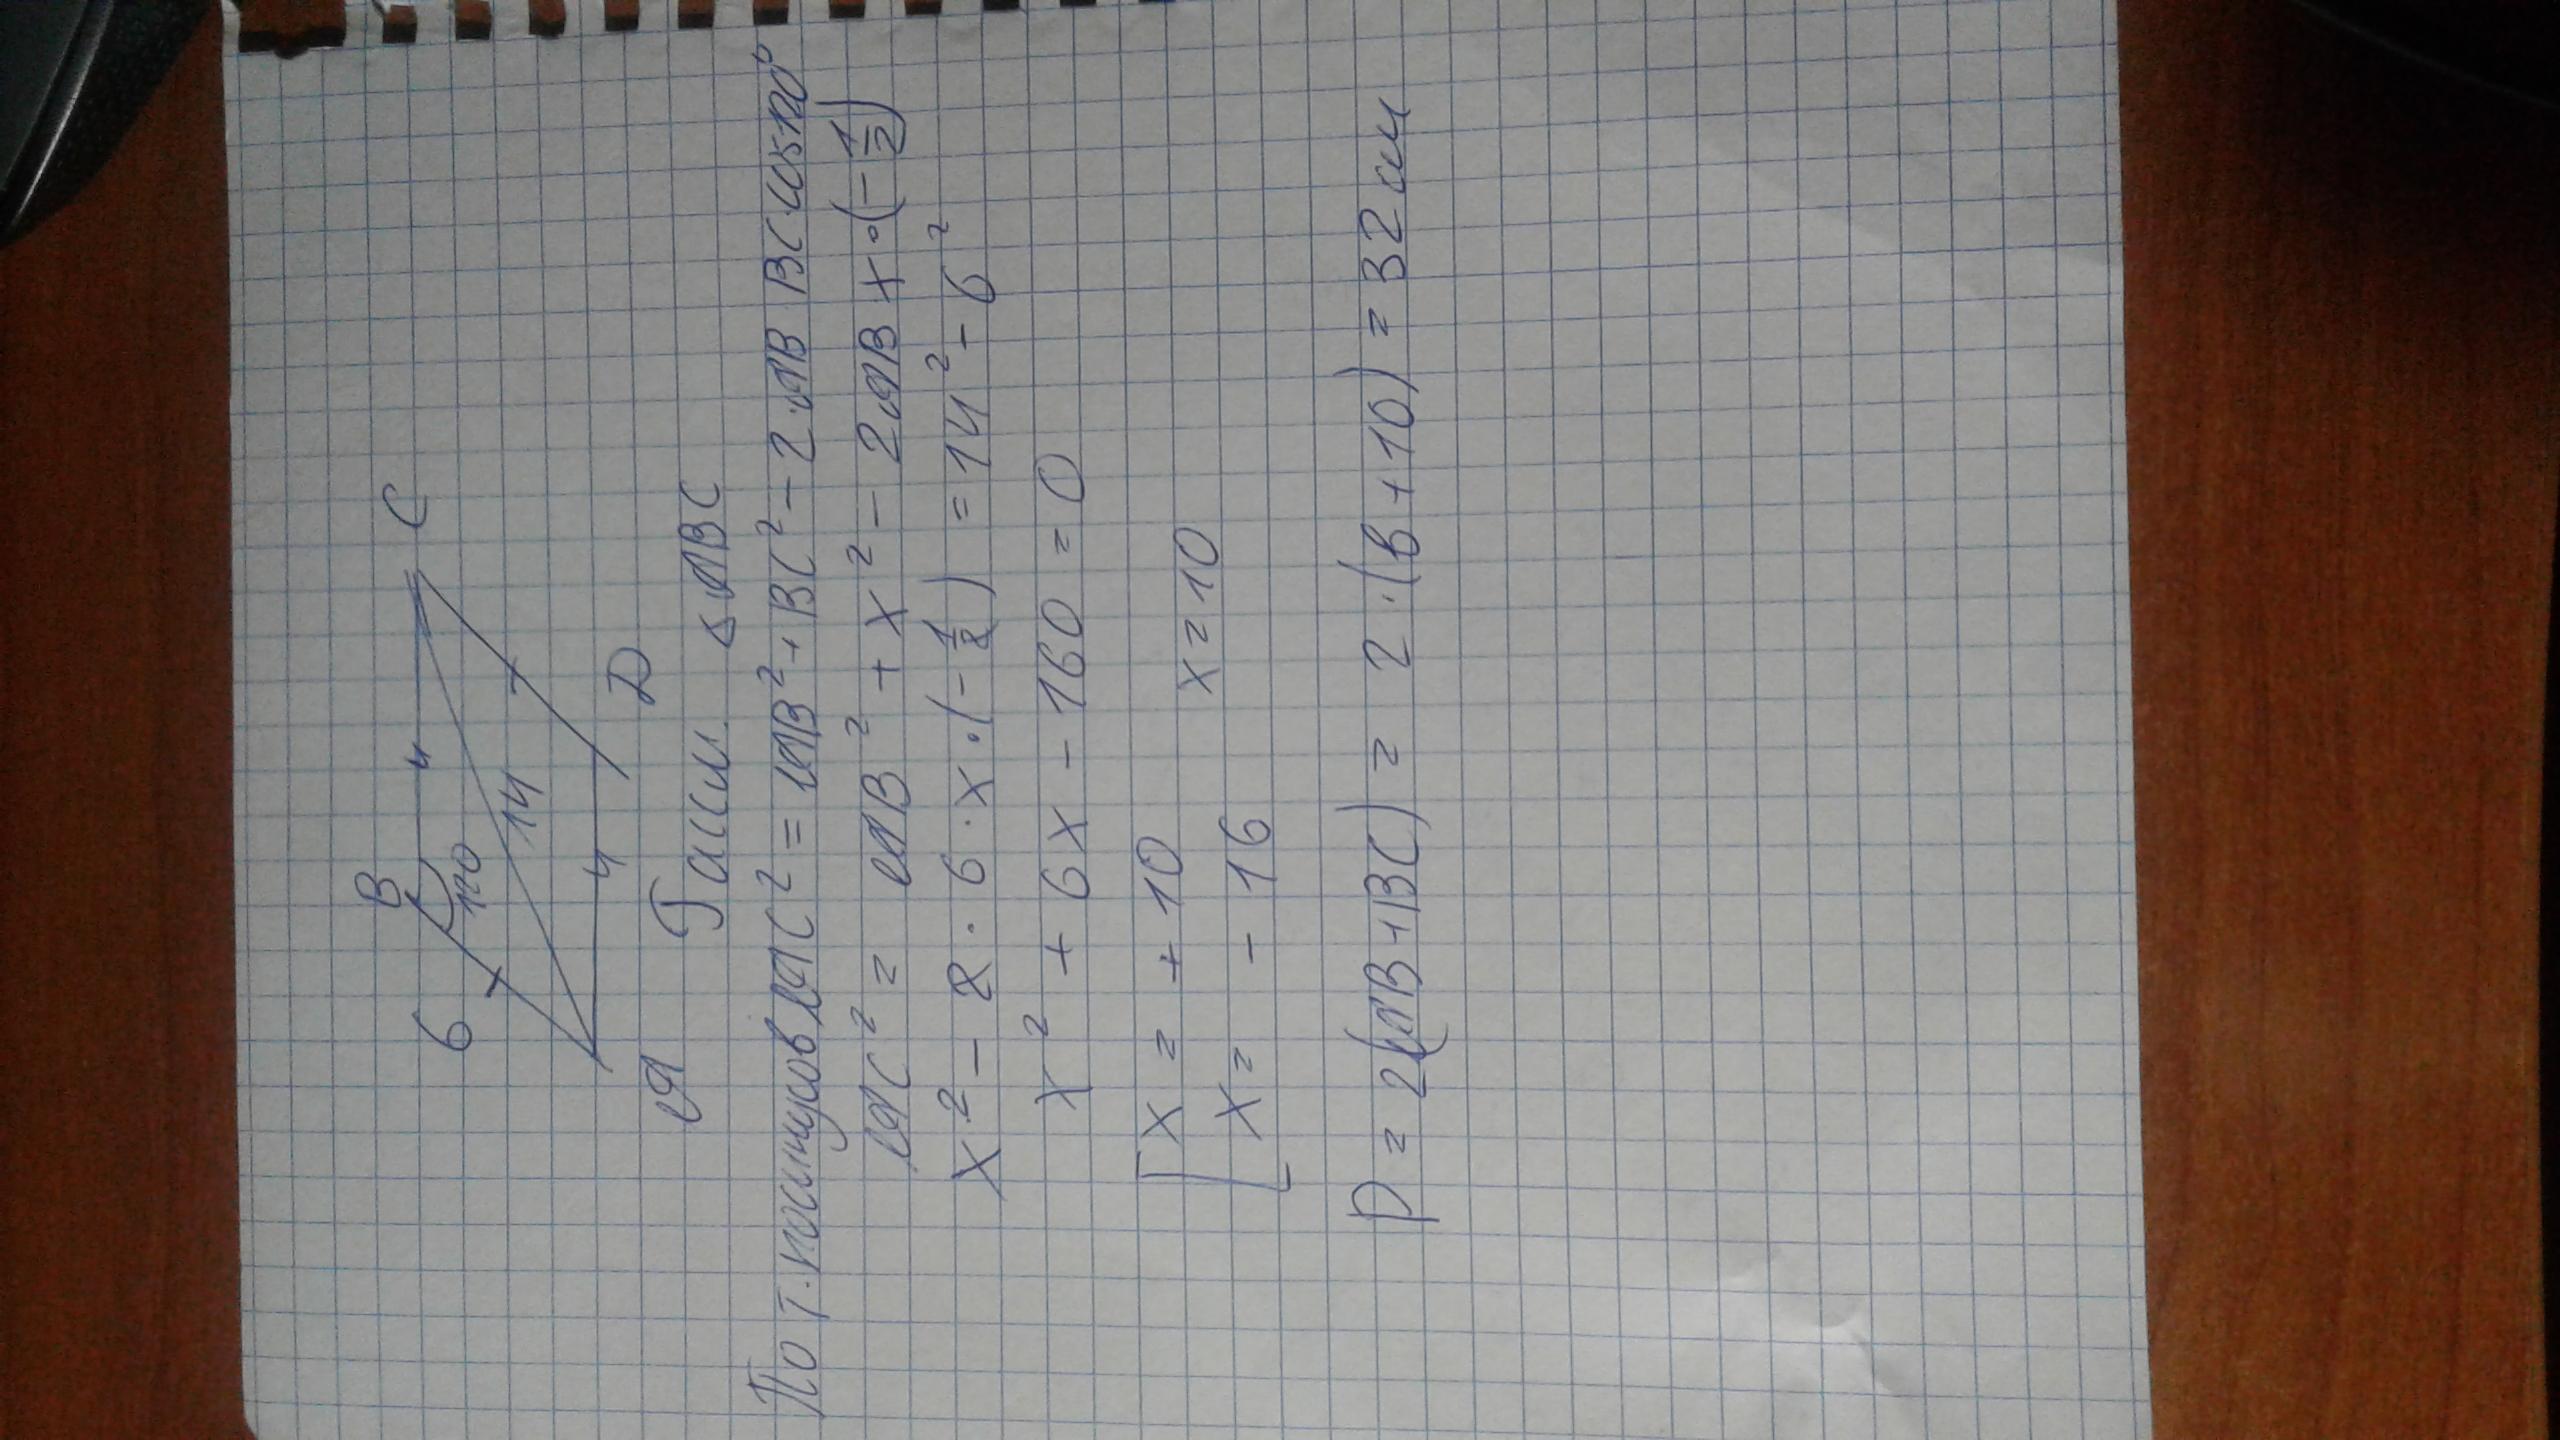 B
C
6
120
14
A
D
Рассм. △ABC
По т. косинусов AC² = AB² + BC² - 2·AB BC·cos120°
AC² = AB² + x² - 2AB x·(-1/2)
x² - 2·6·x·(-1/2) = 14² - 6²
x² + 6x - 160 = 0
[x = +10
x = -16
x = 10
P = 2(AB+BC) = 2·(6+10) = 32 см